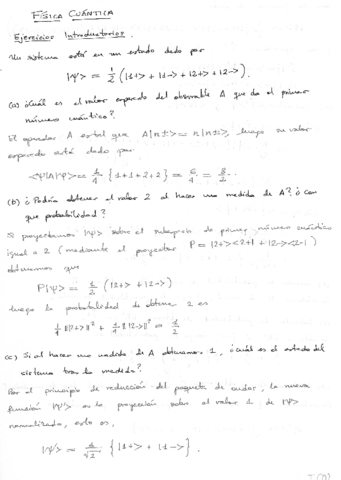 FÍSICA CUÁNTICA
Ejercicios Introductorios.
Un sistema está en un estado dado por
|Ψ> = 1/2 (|1+> + |1-> + |2+> + |2->).
(a) ¿Cuál es el valor esperado del observable A que da el primer
número cuántico?
El operador A es tal que A|n±> = n|n±>, luego su valor
esperado está dado por
<Ψ|A|Ψ> = 1/4 {1+1+2+2} = 6/4 = 3/2.
(b) ¿Podría obtener el valor 2 al hacer una medida de A? ¿Con
que probabilidad?
Si proyectamos |Ψ> sobre el subespacio de primer número cuántico
igual a 2 (mediante el proyector P = |2+><2+| + |2-><2-|)
obtenemos que
P|Ψ> = 1/2 (|2+> + |2->)
luego la probabilidad de obtener 2 es
1/4 ‖|2+>‖² + 1/4 ‖|2->‖² = 1/2
(c) Si al hacer una medida de A obtenemos 1, ¿cuál es el estado del
sistema tras la medida?
Por el principio de reducción del paquete de ondas, la nueva
función |Ψ'> es la proyección sobre el valor 1 de |Ψ>
normalizada, esto es,
|Ψ'> = 1/√2 {|1+> + |1->}.